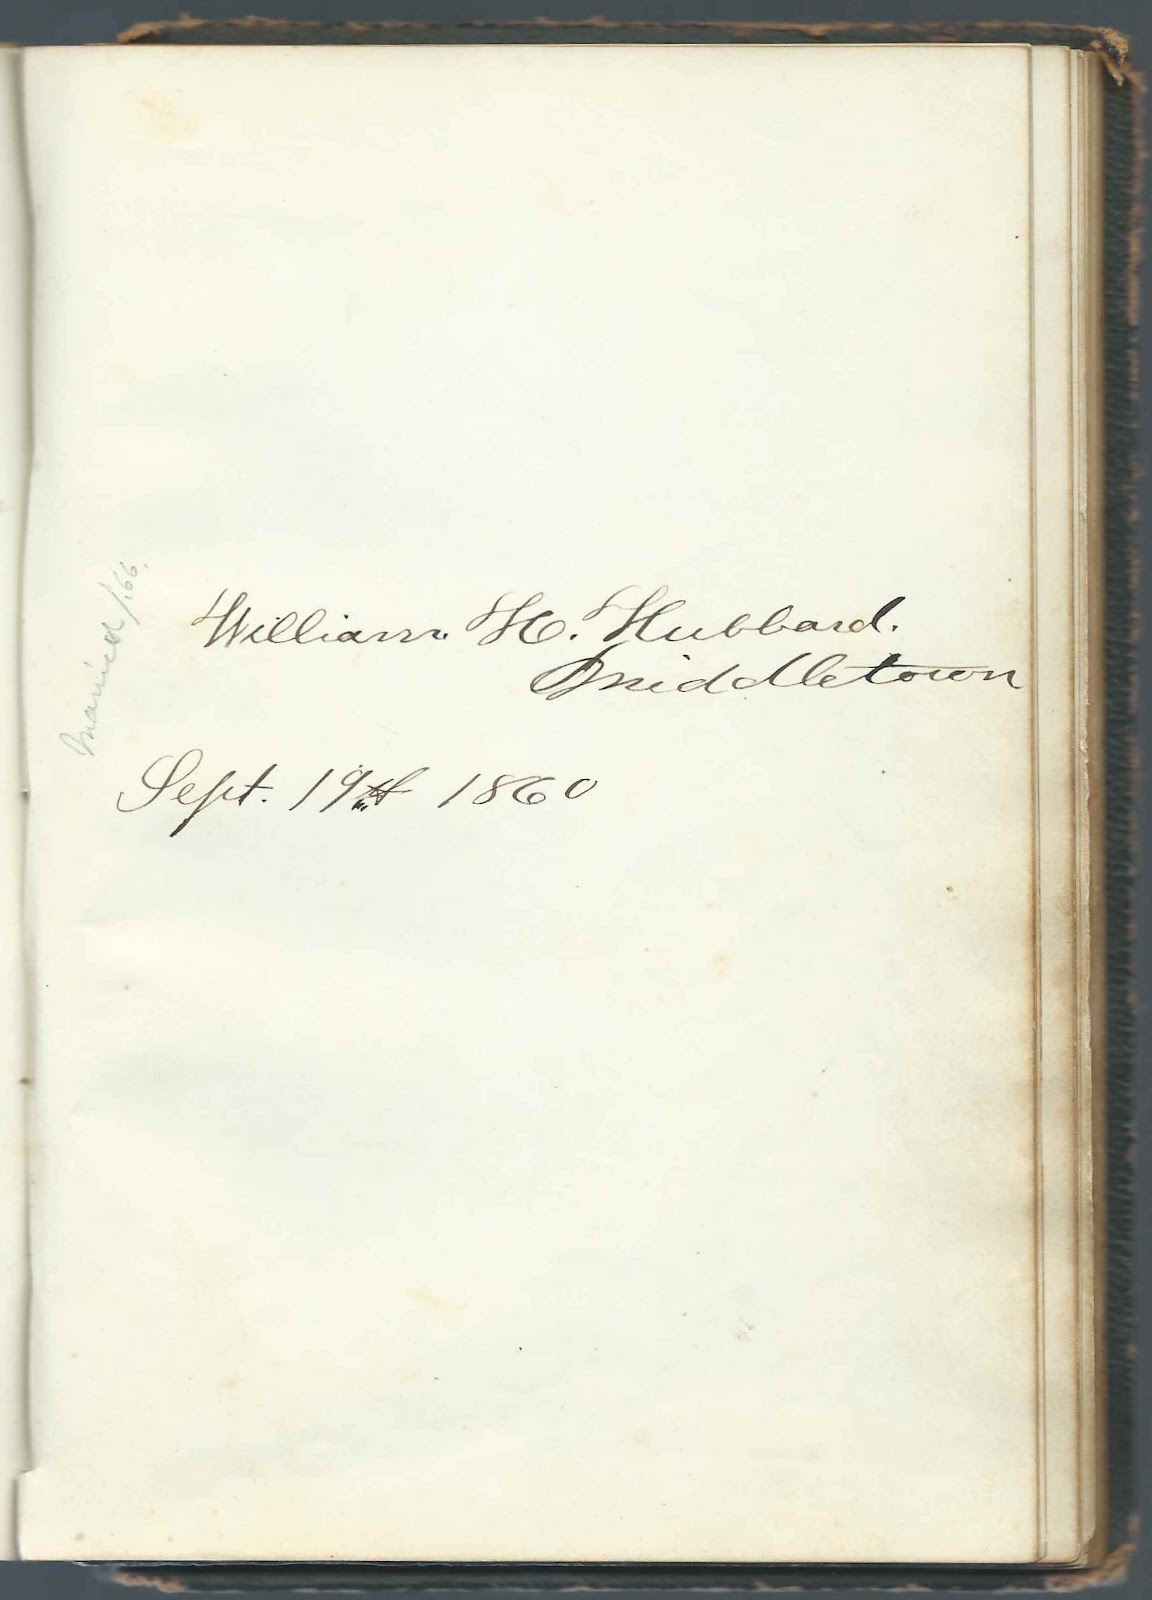 Married /66.
William H. Hubbard.
Middletown
Sept. 19th 1860